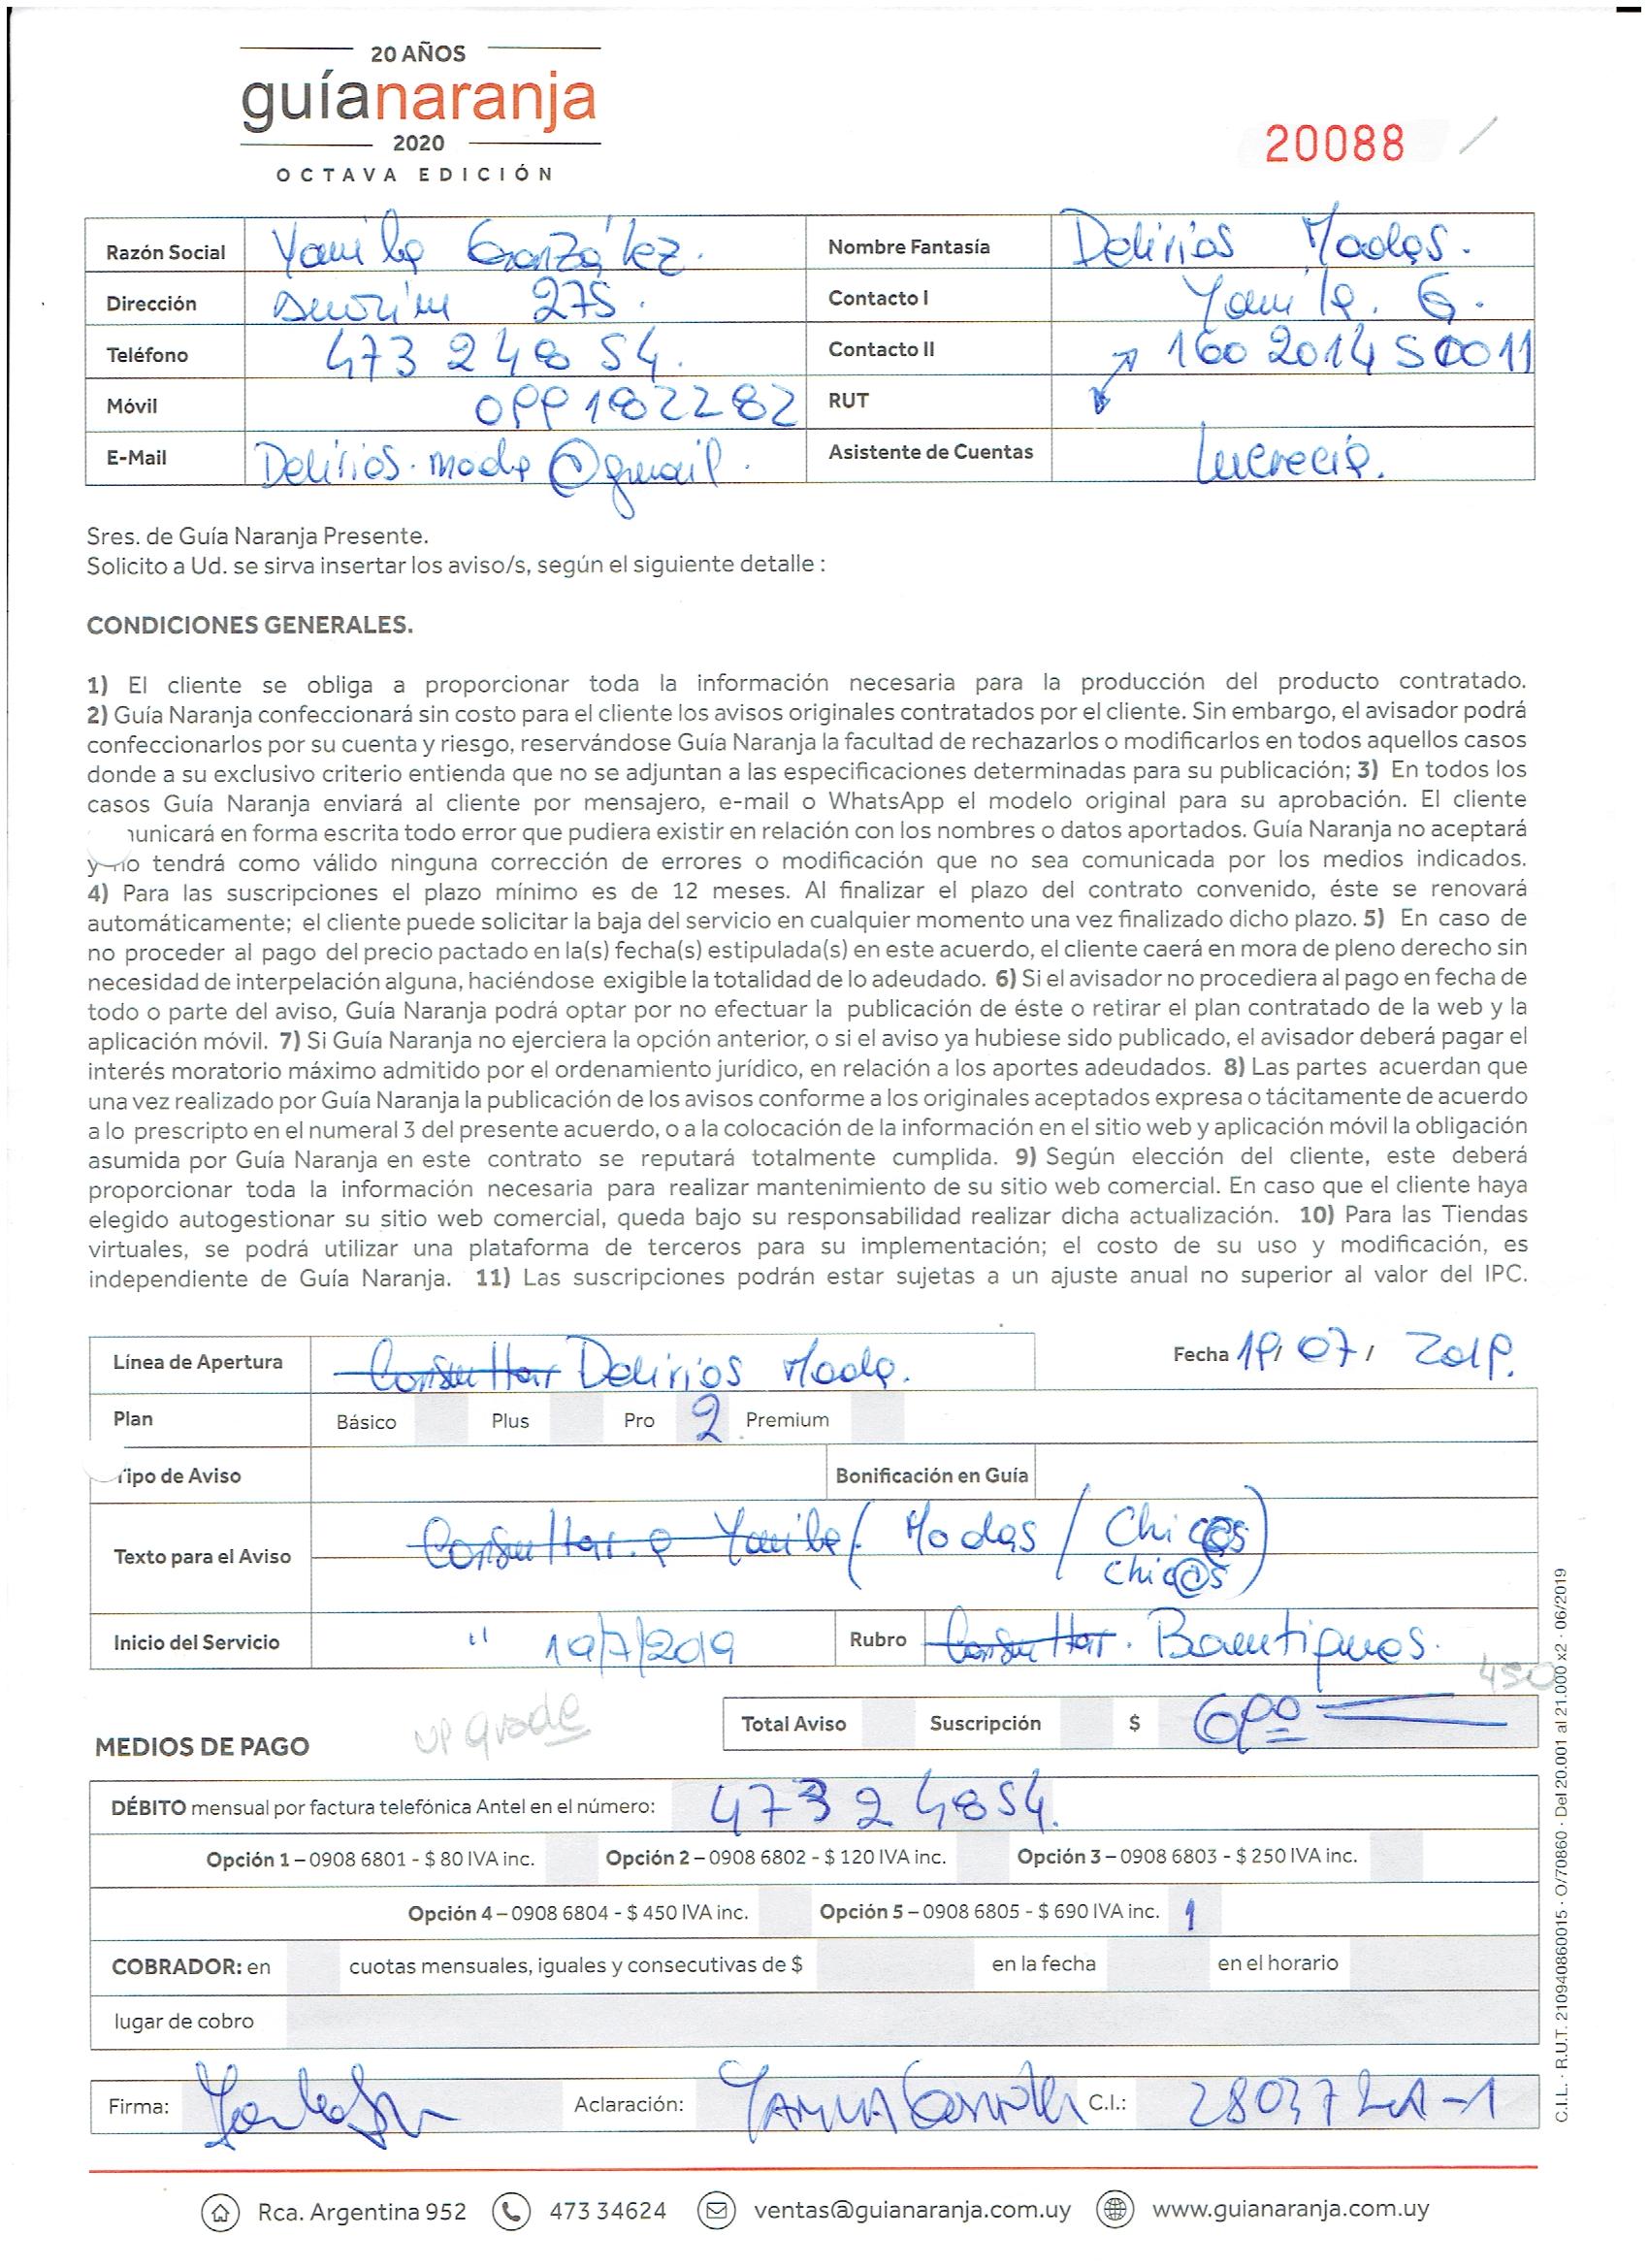 20 AÑOS
guíanaranja
2020
OCTAVA EDICIÓN
20088
Razón Social Yamila González. Nombre Fantasía Delirios Modas.
Dirección Amorím 275. Contacto I Yamila. G.
Teléfono 473 248 54. Contacto II 160 2014 50011
Móvil 099182282 RUT
E-Mail Delirios.moda@gmail. Asistente de Cuentas Lucrecia.
Sres. de Guía Naranja Presente.
Solicito a Ud. se sirva insertar los aviso/s, según el siguiente detalle :
CONDICIONES GENERALES.
1) El cliente se obliga a proporcionar toda la información necesaria para la producción del producto contratado.
2) Guía Naranja confeccionará sin costo para el cliente los avisos originales contratados por el cliente. Sin embargo, el avisador podrá
confeccionarlos por su cuenta y riesgo, reservándose Guía Naranja la facultad de rechazarlos o modificarlos en todos aquellos casos
donde a su exclusivo criterio entienda que no se adjuntan a las especificaciones determinadas para su publicación; 3) En todos los
casos Guía Naranja enviará al cliente por mensajero, e-mail o WhatsApp el modelo original para su aprobación. El cliente
unicará en forma escrita todo error que pudiera existir en relación con los nombres o datos aportados. Guía Naranja no aceptará
y no tendrá como válido ninguna corrección de errores o modificación que no sea comunicada por los medios indicados.
4) Para las suscripciones el plazo mínimo es de 12 meses. Al finalizar el plazo del contrato convenido, éste se renovará
automáticamente; el cliente puede solicitar la baja del servicio en cualquier momento una vez finalizado dicho plazo. 5) En caso de
no proceder al pago del precio pactado en la(s) fecha(s) estipulada(s) en este acuerdo, el cliente caerá en mora de pleno derecho sin
necesidad de interpelación alguna, haciéndose exigible la totalidad de lo adeudado. 6) Si el avisador no procediera al pago en fecha de
todo o parte del aviso, Guía Naranja podrá optar por no efectuar la publicación de éste o retirar el plan contratado de la web y la
aplicación móvil. 7) Si Guía Naranja no ejerciera la opción anterior, o si el aviso ya hubiese sido publicado, el avisador deberá pagar el
interés moratorio máximo admitido por el ordenamiento jurídico, en relación a los aportes adeudados. 8) Las partes acuerdan que
una vez realizado por Guía Naranja la publicación de los avisos conforme a los originales aceptados expresa o tácitamente de acuerdo
a lo prescripto en el numeral 3 del presente acuerdo, o a la colocación de la información en el sitio web y aplicación móvil la obligación
asumida por Guía Naranja en este contrato se reputará totalmente cumplida. 9) Según elección del cliente, este deberá
proporcionar toda la información necesaria para realizar mantenimiento de su sitio web comercial. En caso que el cliente haya
elegido autogestionar su sitio web comercial, queda bajo su responsabilidad realizar dicha actualización. 10) Para las Tiendas
virtuales, se podrá utilizar una plataforma de terceros para su implementación; el costo de su uso y modificación, es
independiente de Guía Naranja. 11) Las suscripciones podrán estar sujetas a un ajuste anual no superior al valor del IPC.
Línea de Apertura Consultar Delirios Moda. Fecha 19/ 07 / 2019.
Plan Básico Plus Pro 2 Premium
Tipo de Aviso Bonificación en Guía
Texto para el Aviso Consultar a Yamila ( Modas / Chic@s
Chic@s )
Inicio del Servicio " 19/7/2019 Rubro Consultar. Boutiques.
450
up grade
Total Aviso Suscripción $ 690
MEDIOS DE PAGO
DÉBITO mensual por factura telefónica Antel en el número: 473 2 4854.
Opción 1 – 0908 6801 - $ 80 IVA inc. Opción 2 – 0908 6802 - $ 120 IVA inc. Opción 3 – 0908 6803 - $ 250 IVA inc.
Opción 4 – 0908 6804 - $ 450 IVA inc. Opción 5 – 0908 6805 - $ 690 IVA inc. 1
COBRADOR: en cuotas mensuales, iguales y consecutivas de $ en la fecha en el horario
lugar de cobro
Firma: Aclaración: C.I.:
Rca. Argentina 952 473 34624 ventas@guianaranja.com.uy www.guianaranja.com.uy
C.I.L. · R.U.T. 210940860015 · O/70860 · Del 20.001 al 21.000 x2 · 06/2019